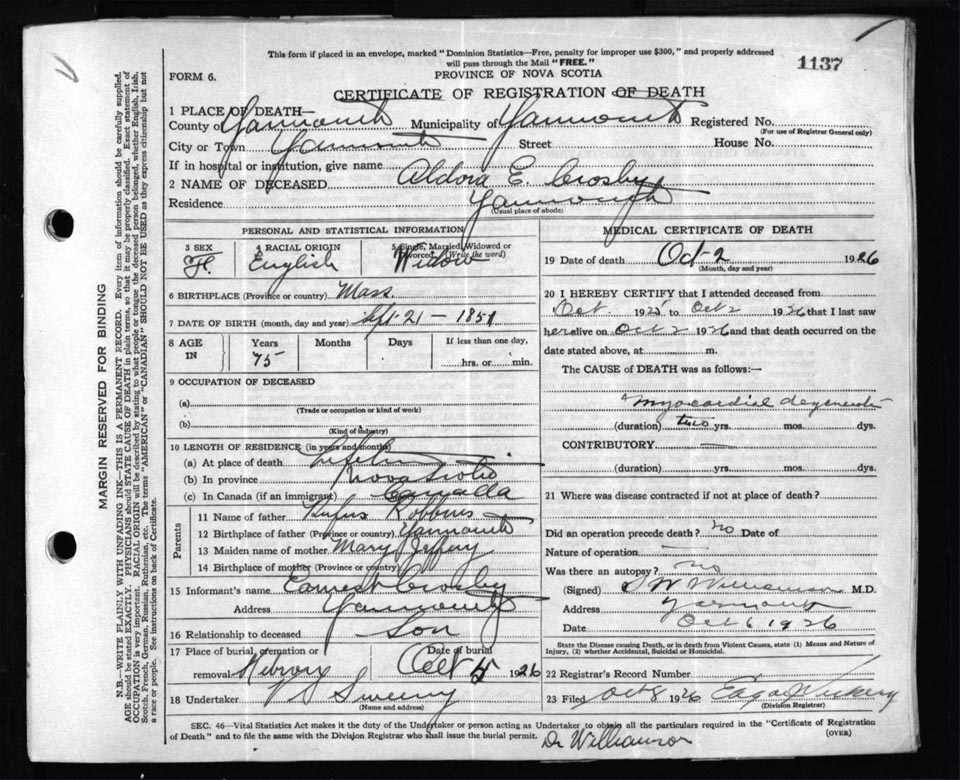 This form if placed in an envelope, marked "Dominion Statistics—Free, penalty for improper use $300," and properly addressed
will pass through the Mail "FREE."
1137
FORM 6.
PROVINCE OF NOVA SCOTIA
CERTIFICATE OF REGISTRATION OF DEATH
1 PLACE OF DEATH—
County of Yarmouth Municipality of Yarmouth Registered No.
(For use of Registrar General only)
City or Town Yarmouth Street House No.
If in hospital or institution, give name
2 NAME OF DECEASED Aldora E. Crosby
Residence Yarmouth
(Usual place of abode)
PERSONAL AND STATISTICAL INFORMATION
3 SEX F. 4 RACIAL ORIGIN English 5 Single, Married, Widowed or Divorced (Write the word) Widow
6 BIRTHPLACE (Province or country) Mass
7 DATE OF BIRTH (month, day and year) Sept 21 – 1851
8 AGE IN Years 75 Months Days If less than one day, hrs. or min.
9 OCCUPATION OF DECEASED
(a)
(Trade or occupation or kind of work)
(b)
(Kind of industry)
10 LENGTH OF RESIDENCE (in years and months)
(a) At place of death
(b) In province Nova Scotia
(c) In Canada (if an immigrant) Canada
Parents
11 Name of father Rufus Robbins
12 Birthplace of father (Province or country) Yarmouth
13 Maiden name of mother Mary Jeffery
14 Birthplace of mother (Province or country)
15 Informant's name Earnest Crosby
Address Yarmouth
16 Relationship to deceased Son
17 Place of burial, cremation or removal Date of burial Oct 1926
18 Undertaker Sweeny
(Name and address)
MEDICAL CERTIFICATE OF DEATH
19 Date of death Oct-2 1926
(Month, day and year)
20 I HEREBY CERTIFY that I attended deceased from
Oct. 1925 to Oct 2 1926 that I last saw
her alive on Oct 2 1926 and that death occurred on the
date stated above, at m.
The CAUSE of DEATH was as follows:—
Myocardial degenerat
(duration) two yrs. mos. dys.
CONTRIBUTORY
(duration) yrs. mos. dys.
21 Where was disease contracted if not at place of death?
Did an operation precede death? no Date of
Nature of operation
Was there an autopsy? no
(Signed) Williamson M.D.
Address Yarmouth
Date Oct 6 1926
State the Disease causing Death, or in death from Violent Causes, state (1) Means and Nature of
Injury, (2) whether Accidental, Suicidal or Homicidal.
22 Registrar's Record Number
23 Filed Oct 8 1926 Edgar
(Division Registrar)
SEC. 46—Vital Statistics Act makes it the duty of the Undertaker or person acting as Undertaker to obtain all the particulars required in the "Certificate of Registration
of Death" and to file the same with the Division Registrar who shall issue the burial permit.
(OVER)
Dr Williamson
MARGIN RESERVED FOR BINDING
N.B.—WRITE PLAINLY WITH UNFADING INK—THIS IS A PERMANENT RECORD. Every item of information should be carefully supplied.
AGE should be stated EXACTLY. PHYSICIANS should STATE CAUSE OF DEATH in plain terms, so that it may be properly classified. Exact statement of
OCCUPATION is very important. RACIAL ORIGIN will be described by stating to what people or tongue the deceased person belonged, whether English, Irish,
Scotch, French, German, Russian, Ruthenian, etc. The terms "AMERICAN" or "CANADIAN" SHOULD NOT BE USED as they express citizenship but not
a race or people. See instructions on back of Certificate.